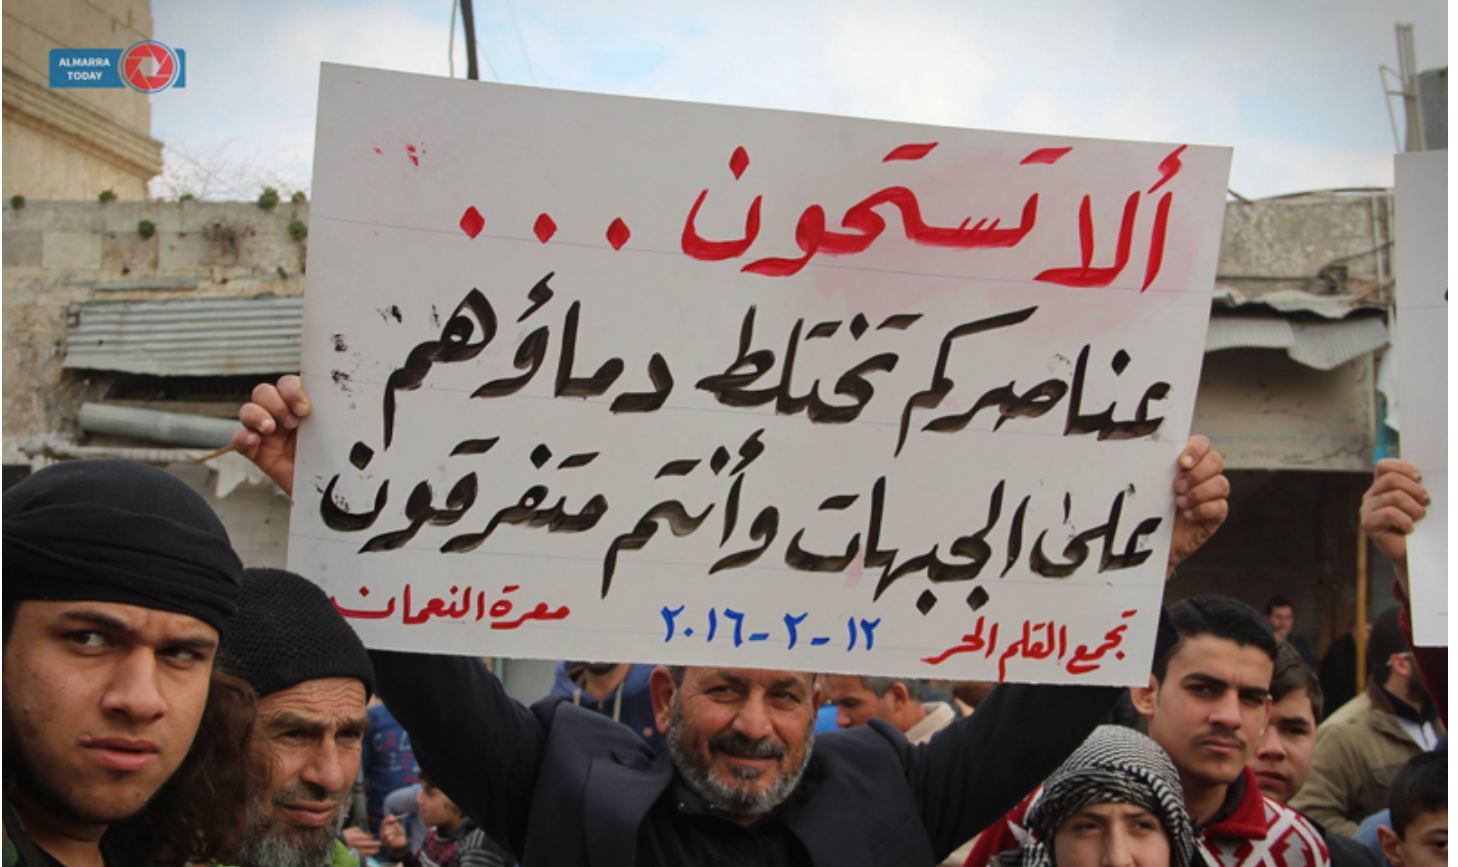 ALMARRA
TODAY
ألا تستحون . . .
عناصركم تختلط دماؤهم
على الجبهات وأنتم متفرقون
تجمع القلم الحر ١٢-٢-٢٠١٦ معرة النعمان